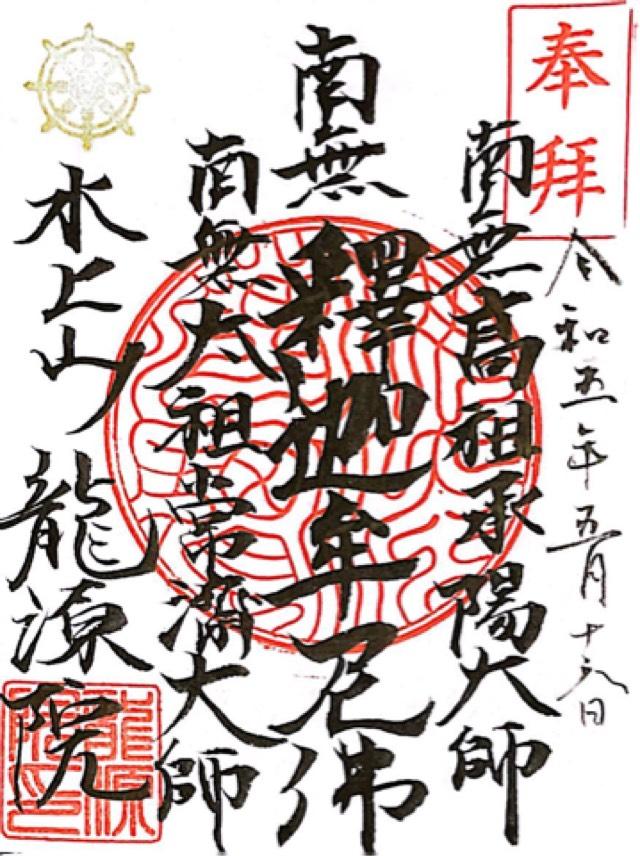 奉拝
令和五年五月十六日
南無高祖承陽大師
南無釋迦牟尼佛
南無太祖常濟大師
水上山 龍源院
龍源院印